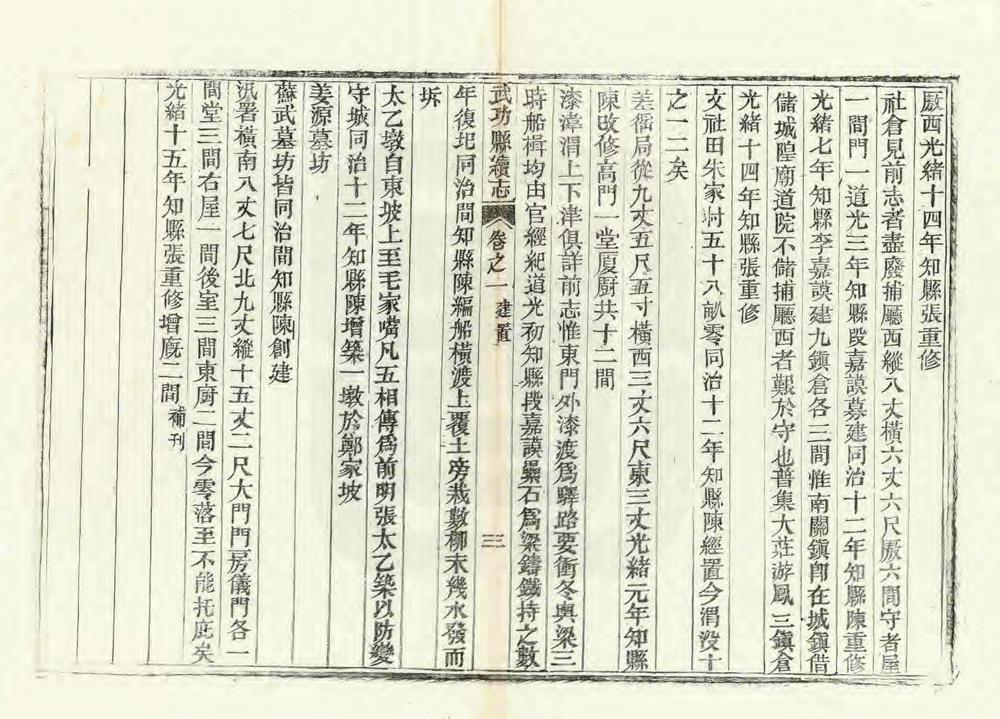 厫西光緒十四年知縣張重修
社倉見前志者盡廢捕廳西縱八丈橫六丈六尺厫六間守者屋
一間門一道光三年知縣段嘉謨募建同治十二年知縣陳重修
光緒七年知縣李嘉謨建九鎮倉各三間惟南關鎮卽在城鎮借
儲城隍廟道院不儲捕廳西者艱於守也普集大莊游鳳三鎮倉
光緒十四年知縣張重修
文社田朱家村五十八畝零同治十二年知縣陳經置今渭沒十
之一二矣
差徭局從九丈五尺五寸橫西三丈六尺東三丈光緒元年知縣
陳改修高門一堂厦厨共十二間
漆漳渭上下津俱詳前志惟東門外漆渡爲驛路要衝冬輿梁三
時船楫均由官經紀道光初知縣段嘉謨纍石爲梁鑄鐵持之數
武功縣續志 卷之一 建置 三
年復圯同治間知縣陳編船橫渡上覆土旁栽數柳未幾水發而
坼
太乙墩自東坡上至毛家嘴凡五相傳爲前明張太乙築以防變
守城同治十二年知縣陳增築一墩於鄭家坡
姜源墓坊
蘇武墓坊皆同治間知縣陳創建
汛署橫南八丈七尺北九丈縱十五丈二尺大門門房儀門各一
間堂三間右屋一間後室三間東厨二間今零落至不能托庇矣
光緒十五年知縣張重修增廐二間 補刊